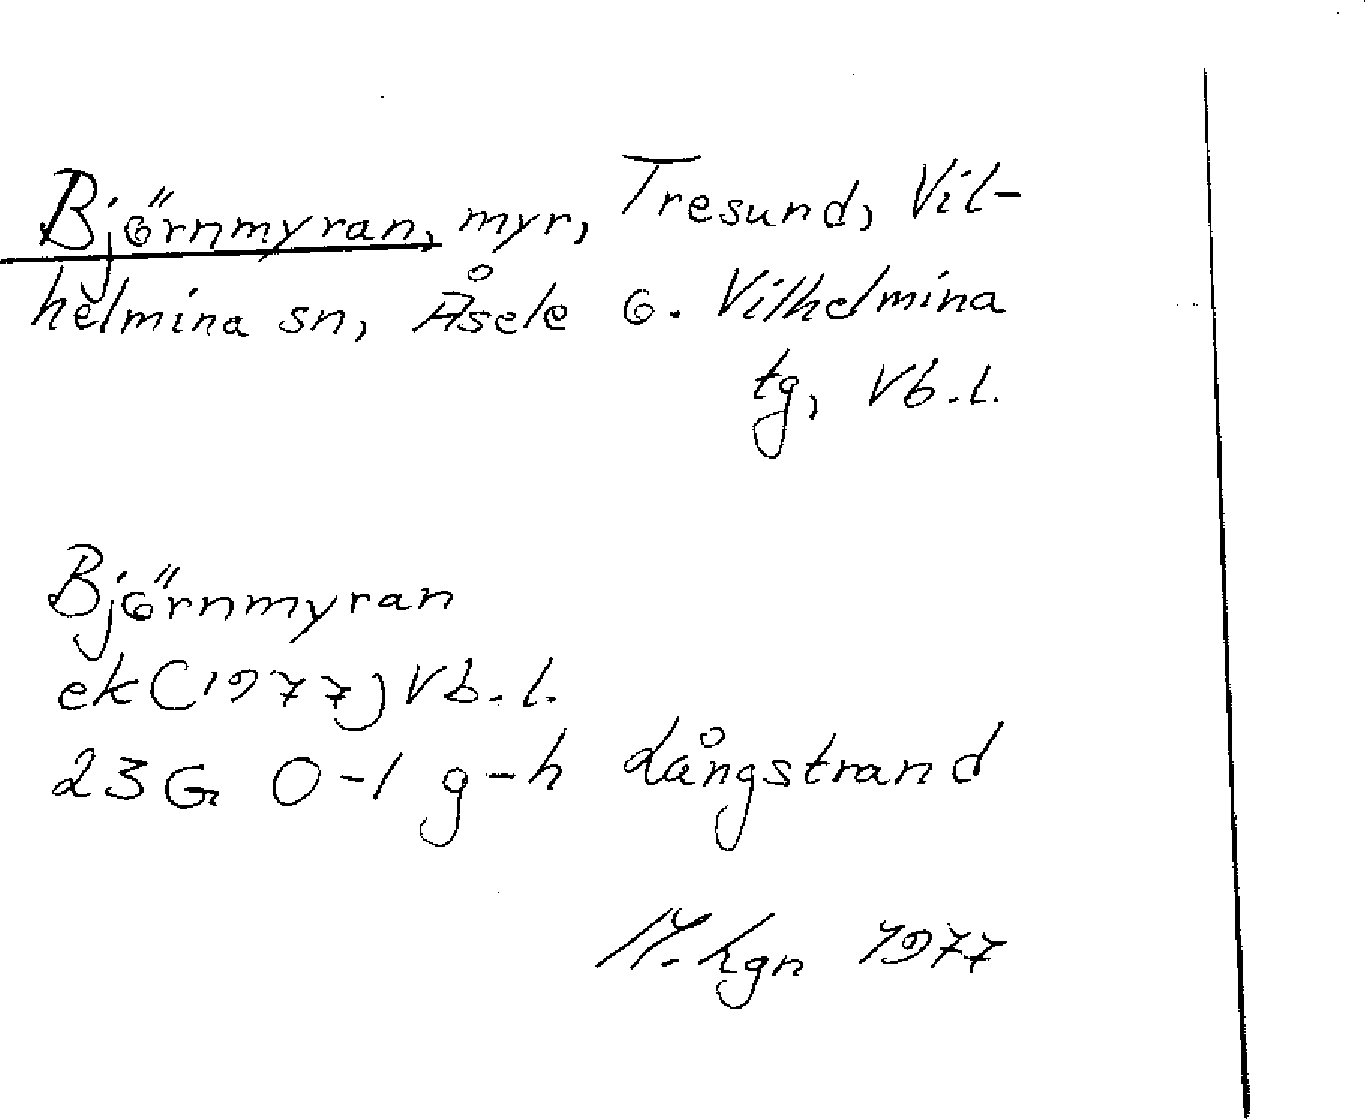 Björnmyran, myr, Tresund, Vil-
helmina sn, Åsele o. Vilhelmina
tg, Vb.l.
Björnmyran
ek (1977) Vb.l.
23G 0-1 g-h Långstrand
hgn 1977